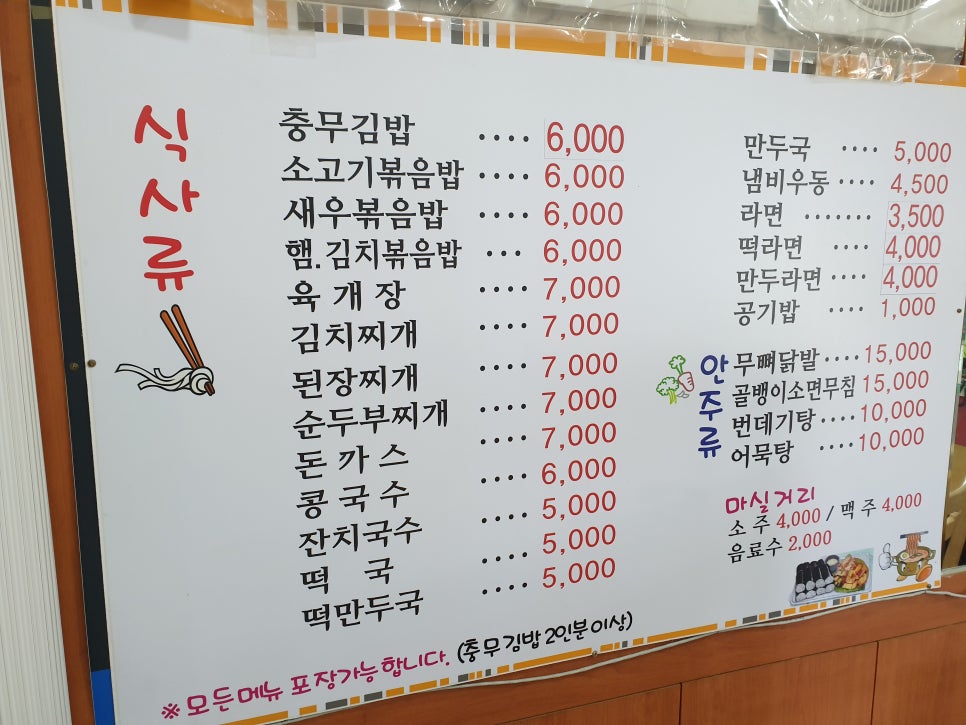 식사류
충무김밥 ···· 6,000
소고기볶음밥 ···· 6,000
새우볶음밥 ···· 6,000
햄.김치볶음밥 ··· 6,000
육 개 장 ···· 7,000
김치찌개 ···· 7,000
된장찌개 ···· 7,000
순두부찌개 ···· 7,000
돈 까 스 ···· 7,000
콩 국 수 ···· 6,000
잔치국수 ···· 5,000
떡 국 ···· 5,000
떡만두국 ···· 5,000
만두국 ···· 5,000
냄비우동 ···· 4,500
라면 ······· 3,500
떡라면 ···· 4,000
만두라면 ···· 4,000
공기밥 ···· 1,000
안주류
무뼈닭발 ···· 15,000
골뱅이소면무침 15,000
번데기탕 ···· 10,000
어묵탕 ···· 10,000
마실거리
소 주 4,000 / 맥 주 4,000
음료수 2,000
※모든메뉴 포장가능합니다. (충무김밥 2인분이상)